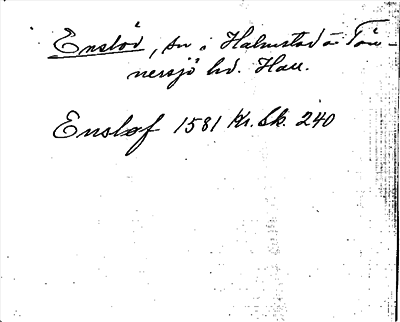 Enslöv, sn i Halmstad o Tön-
nersjö hd. Hall.
Enslof 1581 Kr. Sk. 240